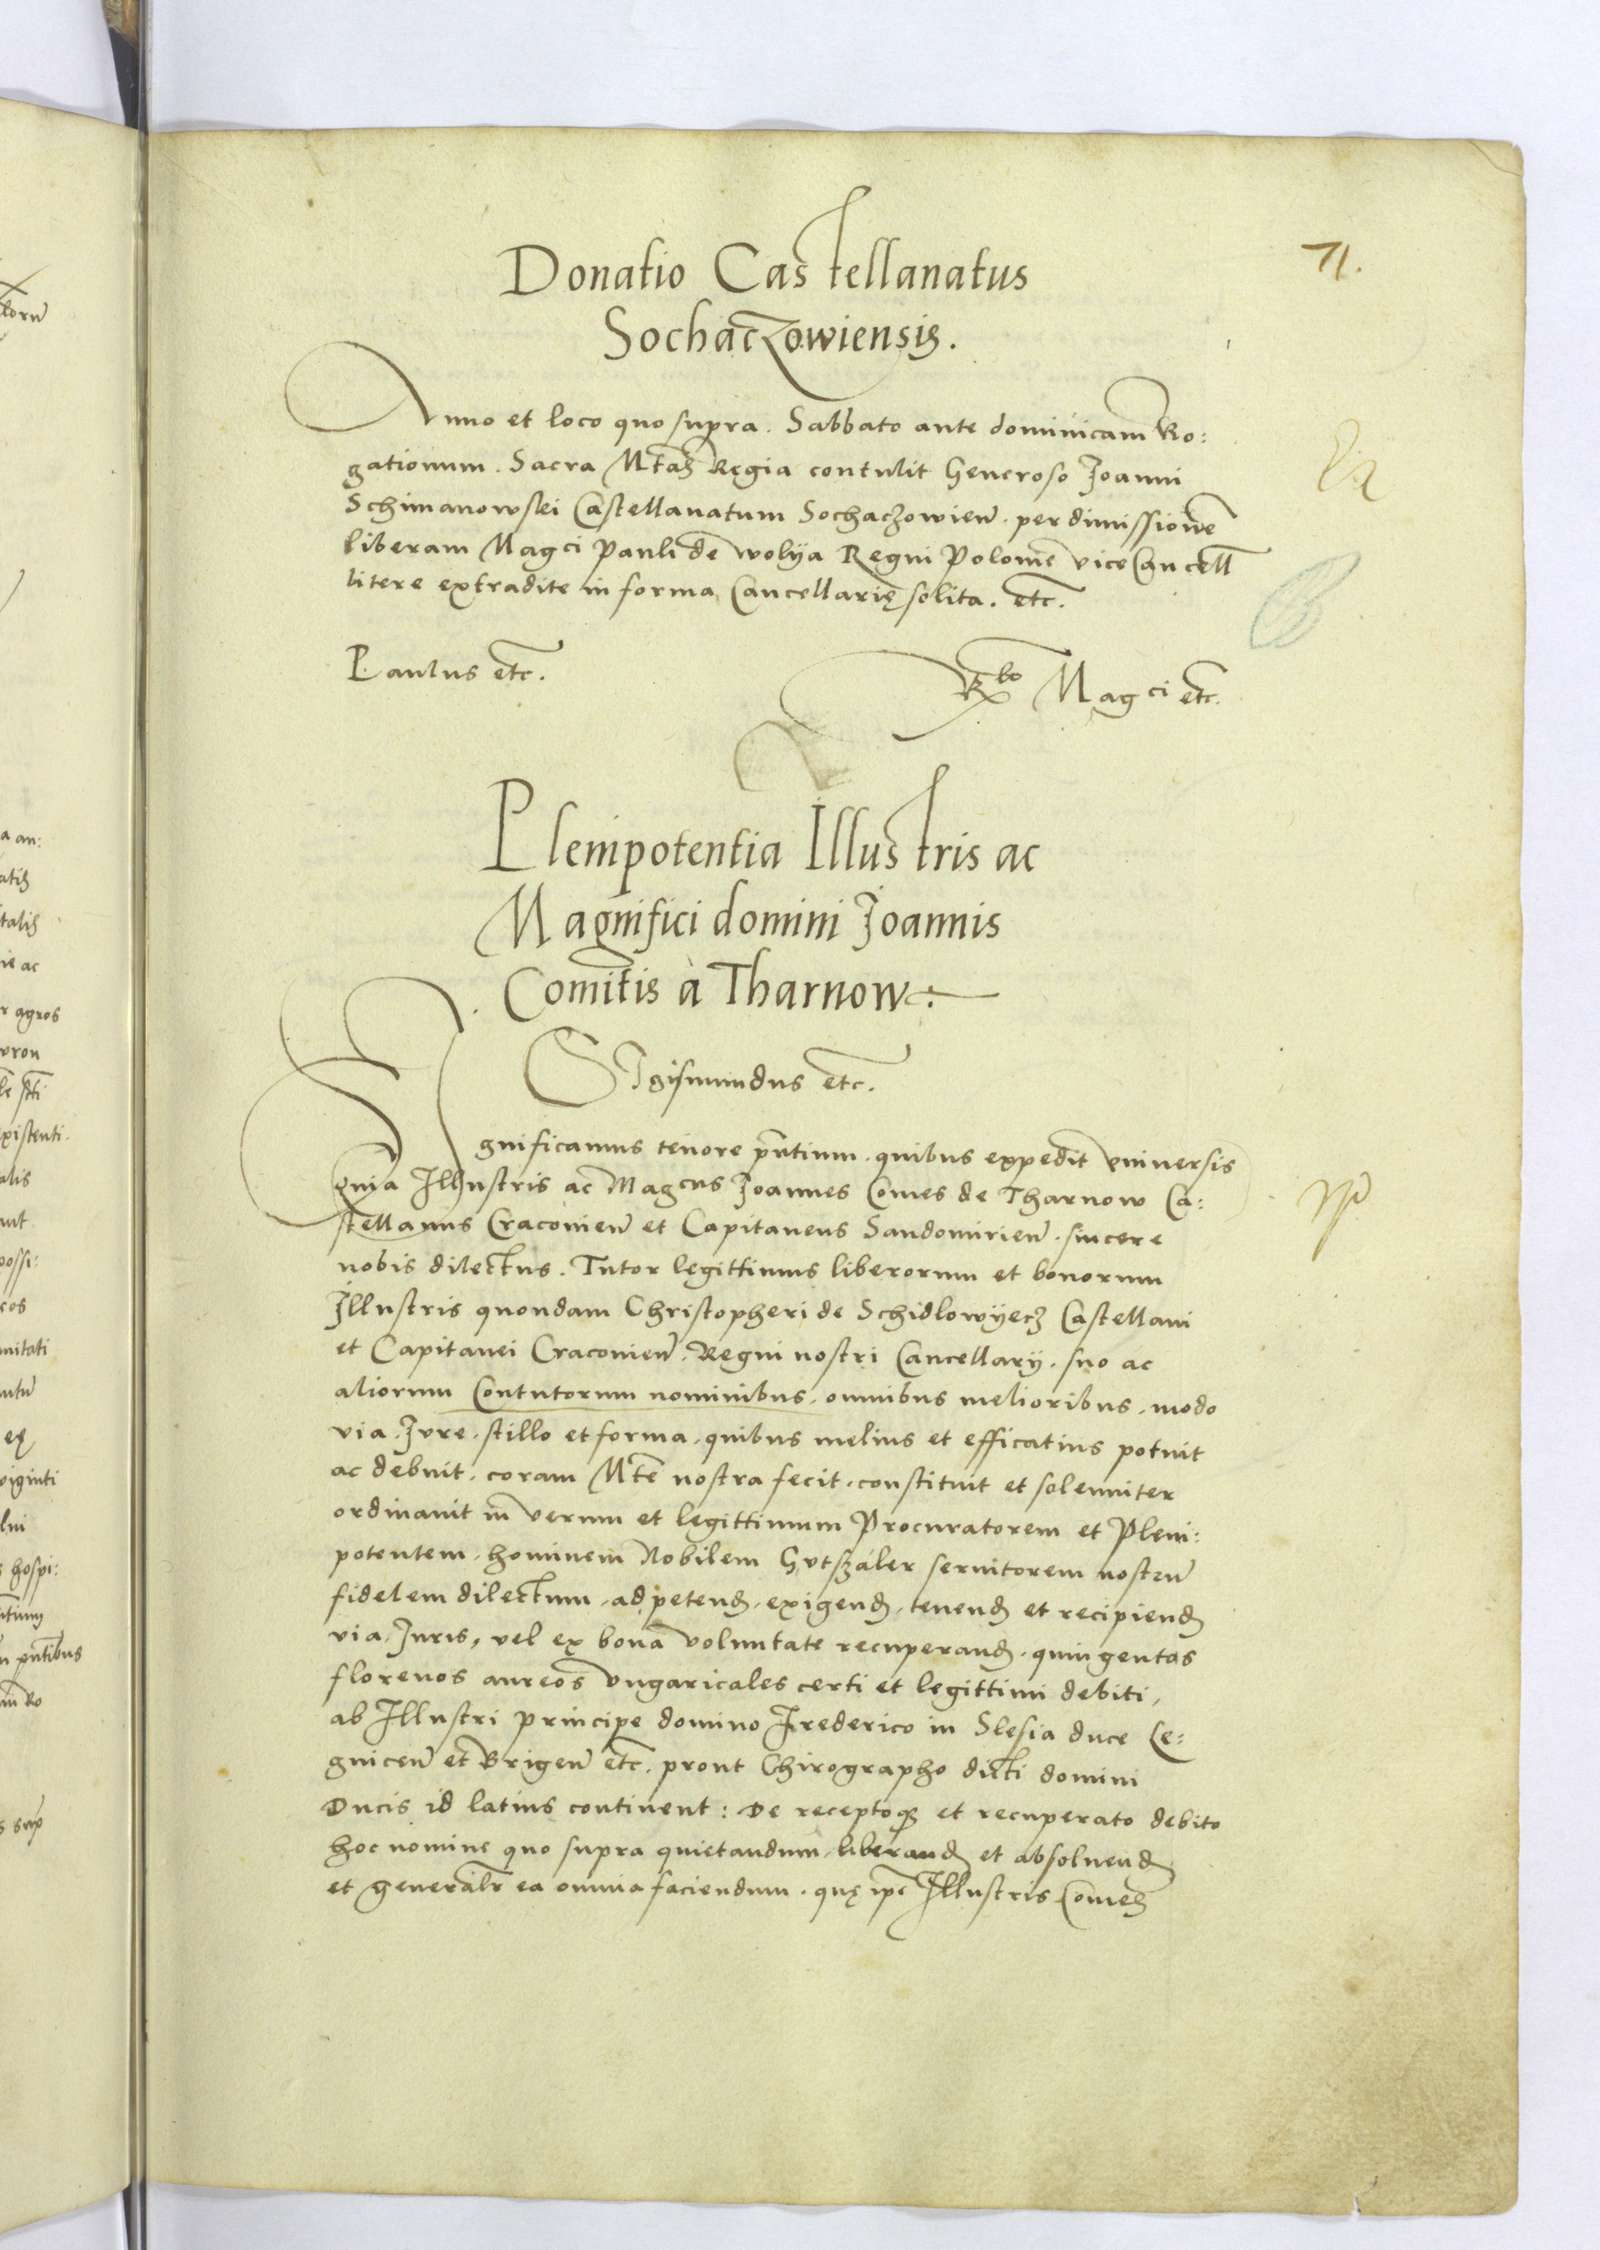 71.
Donatio Castellanatus
Sochaczowiensis.
Anno et loco quo supra. Sabbato ante dominicam Ro:
gationum. Sacra Mtas Regia contulit Generoso Joanni
Schimanowski Castellanatum Sochaczowien. per dimissionem
liberam Magci Pauli de Wolya Regni Polonie vice Cancell
litere extradite in forma Cancellarię solita. etc.
Paulus etc.
Rlo Magci etc.
Plenipotentia Illustris ac
Magnifici domini Joannis
Comitis à Tharnow.
Sigismundus etc.
Significamus tenore pntium. quibus expedit universis
quia Illustris ac Magcus Joannes Comes de Tharnow Ca:
stellanus Cracovien et Capitaneus Sandomirien. sincere
nobis dilectus. Tutor legittimus liberorum et bonorum
Illustris quondam Christopheri de Schidlowyecz Castellani
et Capitanei Cracovien. Regni nostri Cancellarij. suo ac
aliorum Contutorum nominibus. omnibus melioribus. modo
via. Jure. stillo et forma. quibus melius et efficatius potuit
ac debuit. coram Mte nostra fecit. constituit et solenniter
ordinavit in verum et legittimum Procuratorem et Pleni:
potentem. hominem Nobilem Gutszáler servitorem nostrum
fidelem dilectum. ad petend. exigend. tenend et recipiend
via Juris, vel ex bona voluntate recuperand. quingentos
florenos aureos Ungaricales certi et legittimi debiti,
ab Illustri principe domino Frederico in Slesia duce Le:
gnicen et Brigen etc. prout Chirographo dicti domini
Ducis id latius continent: De receptoque et recuperato debito
hoc nomine quo supra quietandum. liberand et absolvend
et generalr ea omnia faciendum. quę ipe Illustris Comes